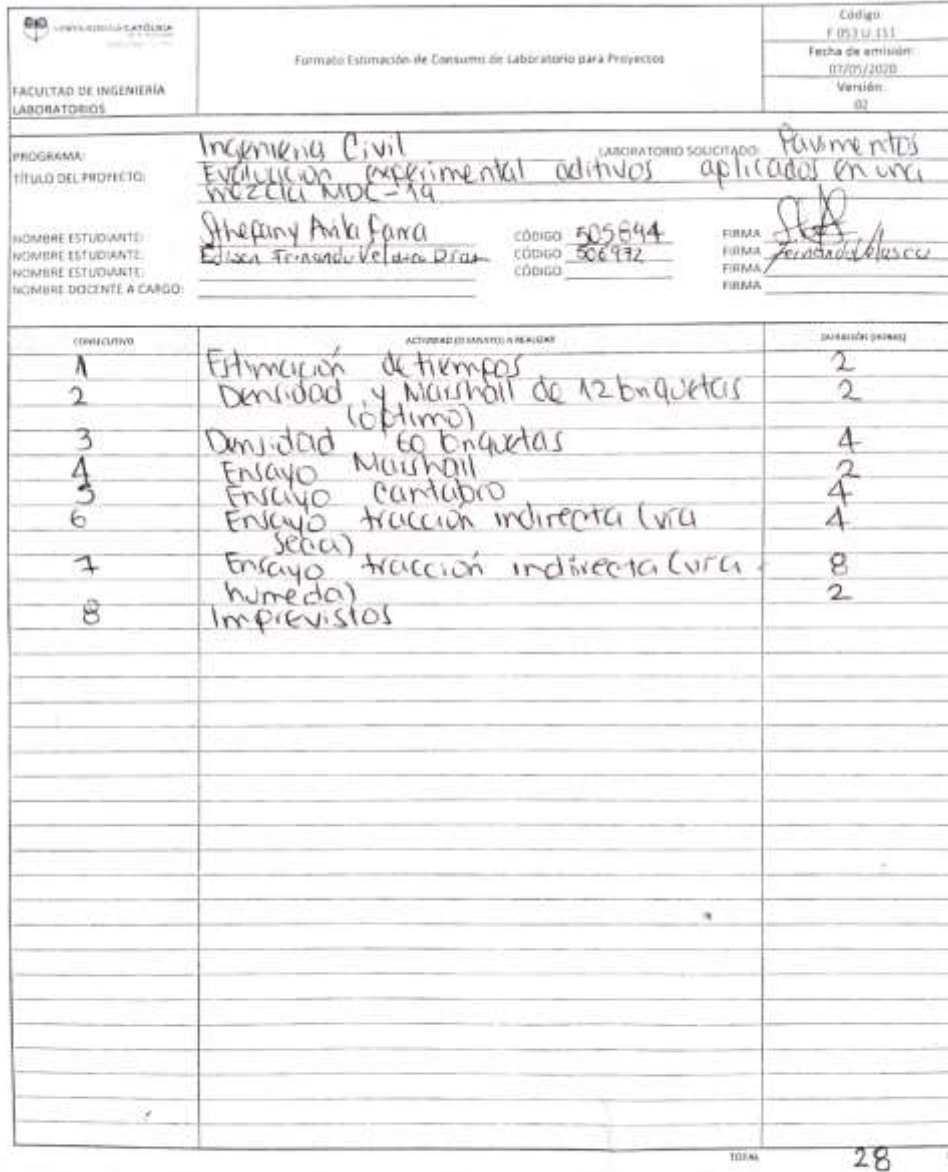 UNIVERSIDAD CATÓLICA
Formato Estimación de Consumo de Laboratorio para Proyectos
Código
F 053 U 111
Fecha de emisión:
07/05/2020
Versión:
02
FACULTAD DE INGENIERÍA
LABORATORIOS
PROGRAMA: Ingenieria Civil LABORATORIO SOLICITADO: Pavimentos
TÍTULO DEL PROYECTO: Evaluación experimental aditivos aplicados en una
mezcla MDC-19
NOMBRE ESTUDIANTE: Sthefany Avila Parra CÓDIGO 505844 FIRMA
NOMBRE ESTUDIANTE: Edison Fernando Velasco Diaz CÓDIGO 506972 FIRMA Fernando Velasco
NOMBRE ESTUDIANTE: CÓDIGO FIRMA
NOMBRE DOCENTE A CARGO: FIRMA
CONSECUTIVO ACTIVIDAD (O ENSAYO) A REALIZAR DURACIÓN (HORAS)
1 Estimación de tiempos 2
2 Densidad y Marshall de 12 briquetas 2
(óptimo)
3 Densidad 60 briquetas 4
4 Ensayo Marshall 2
5 Ensayo cantabro 4
6 Ensayo tracción indirecta (vía 4
seca)
7 Ensayo tracción indirecta (vía 8
humeda) 2
8 Imprevistos
TOTAL 28